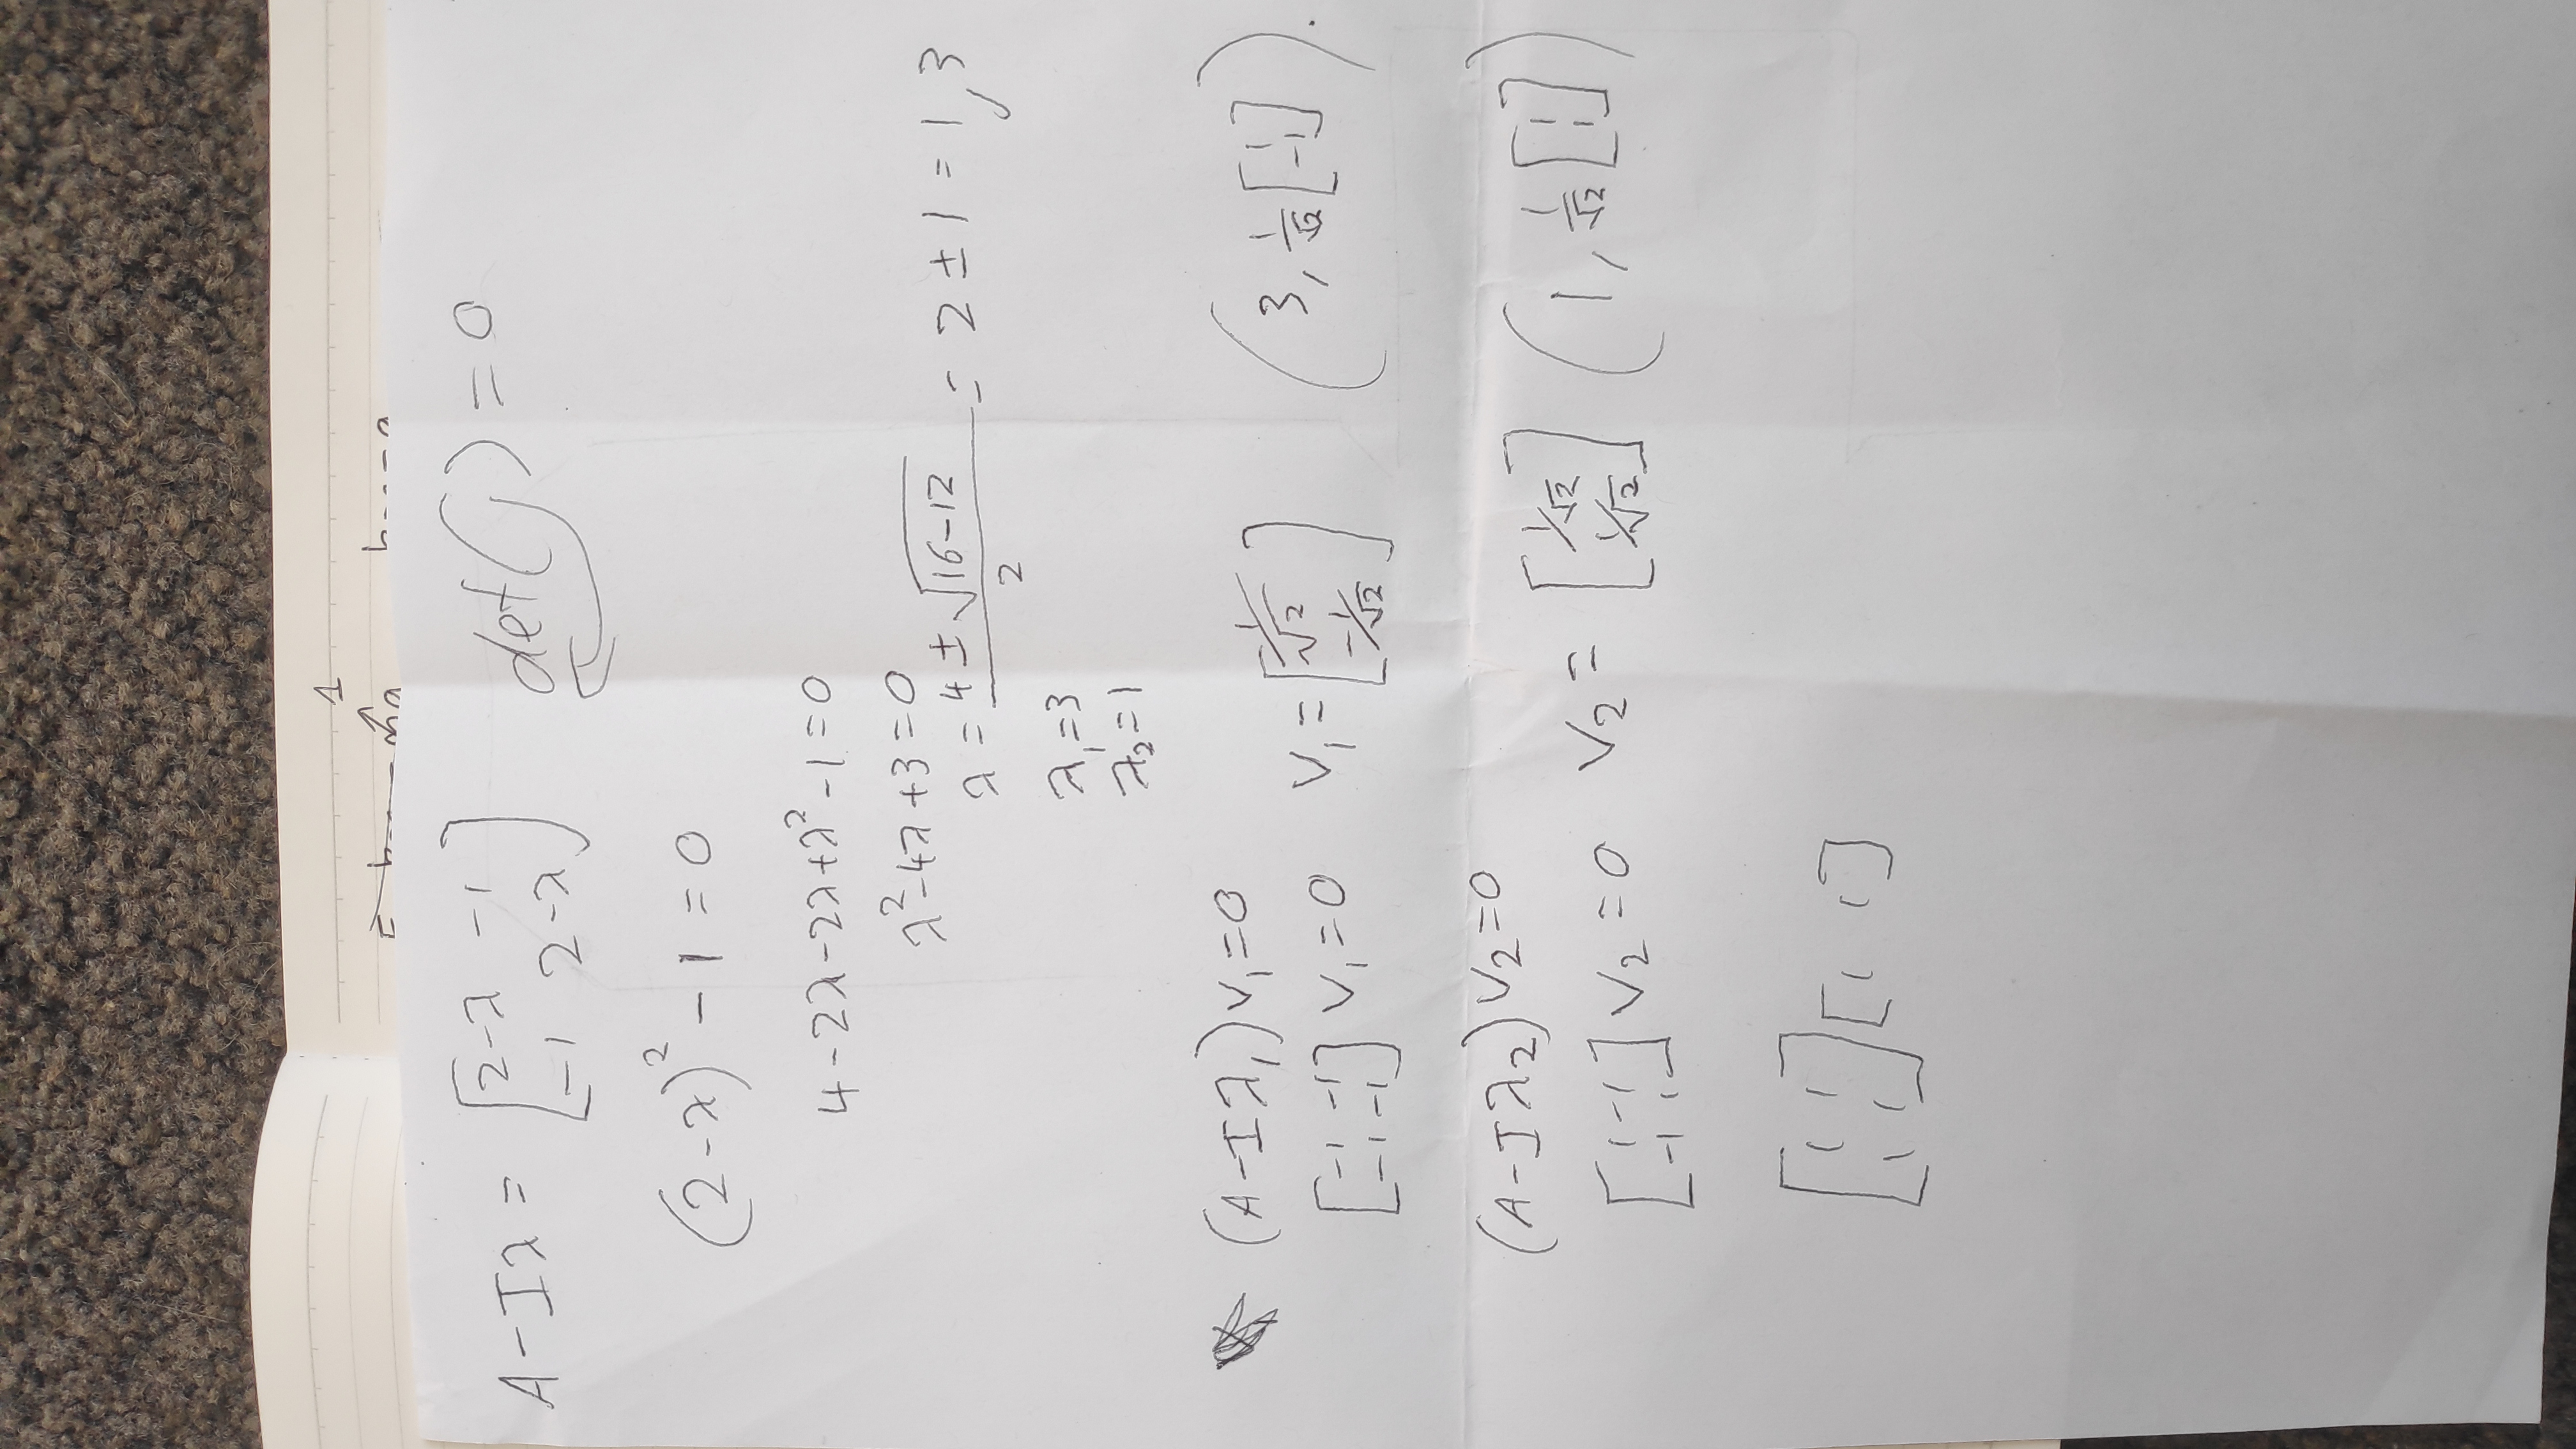 1
A - Iλ = [2-λ -1
-1 2-λ] det( ) = 0
(2-λ)² - 1 = 0
4-2λ-2λ+λ²-1=0
λ²-4λ+3=0
λ = (4 ± √(16-12))/2 = 2 ± 1 = 1,3
λ₁=3
λ₂=1
(A-Iλ₁)v₁=0
[-1 -1
-1 -1] v₁=0 v₁=[1/√2
-1/√2] (3, 1/√2 [1
-1]).
(A-Iλ₂)v₂=0
[1 -1
-1 1] v₂=0 v₂= [1/√2
1/√2] (1, 1/√2 [1
1])
[1 1
1 1][1 1]